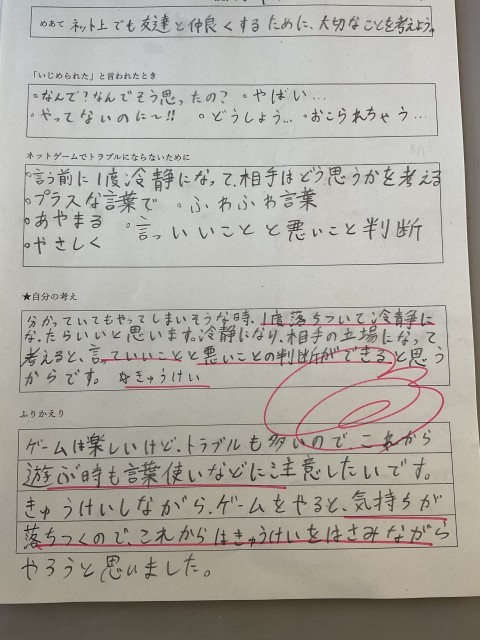 めあて ネット上でも友達と仲良くするために、大切なことを考えよう。
「いじめられた」と言われたとき
・なんで?なんでそう思ったの? ・やばい…
・やってないのに〜!! ・どうしよう… ・おこられちゃう…
ネットゲームでトラブルにならないために
・言う前に1度冷静になって、相手はどう思うかを考える
・プラスな言葉で ・ふわふわ言葉
・あやまる ・言っていいことと悪いこと判断
・やさしく
★自分の考え
分かっていてもやってしまいそうな時、1度落ちついて冷静に
なったらいいと思います。冷静になり、相手の立場になって
考えると、言っていいことと悪いことの判断ができると思う
からです。 きゅうけい
ふりかえり
ゲームは楽しいけど、トラブルも多いので、これから
遊ぶ時も言葉使いなどに注意したいです。
きゅうけいしながら、ゲームをやると、気持ちが
落ちつくので、これからはきゅうけいをはさみながら
やろうと思いました。